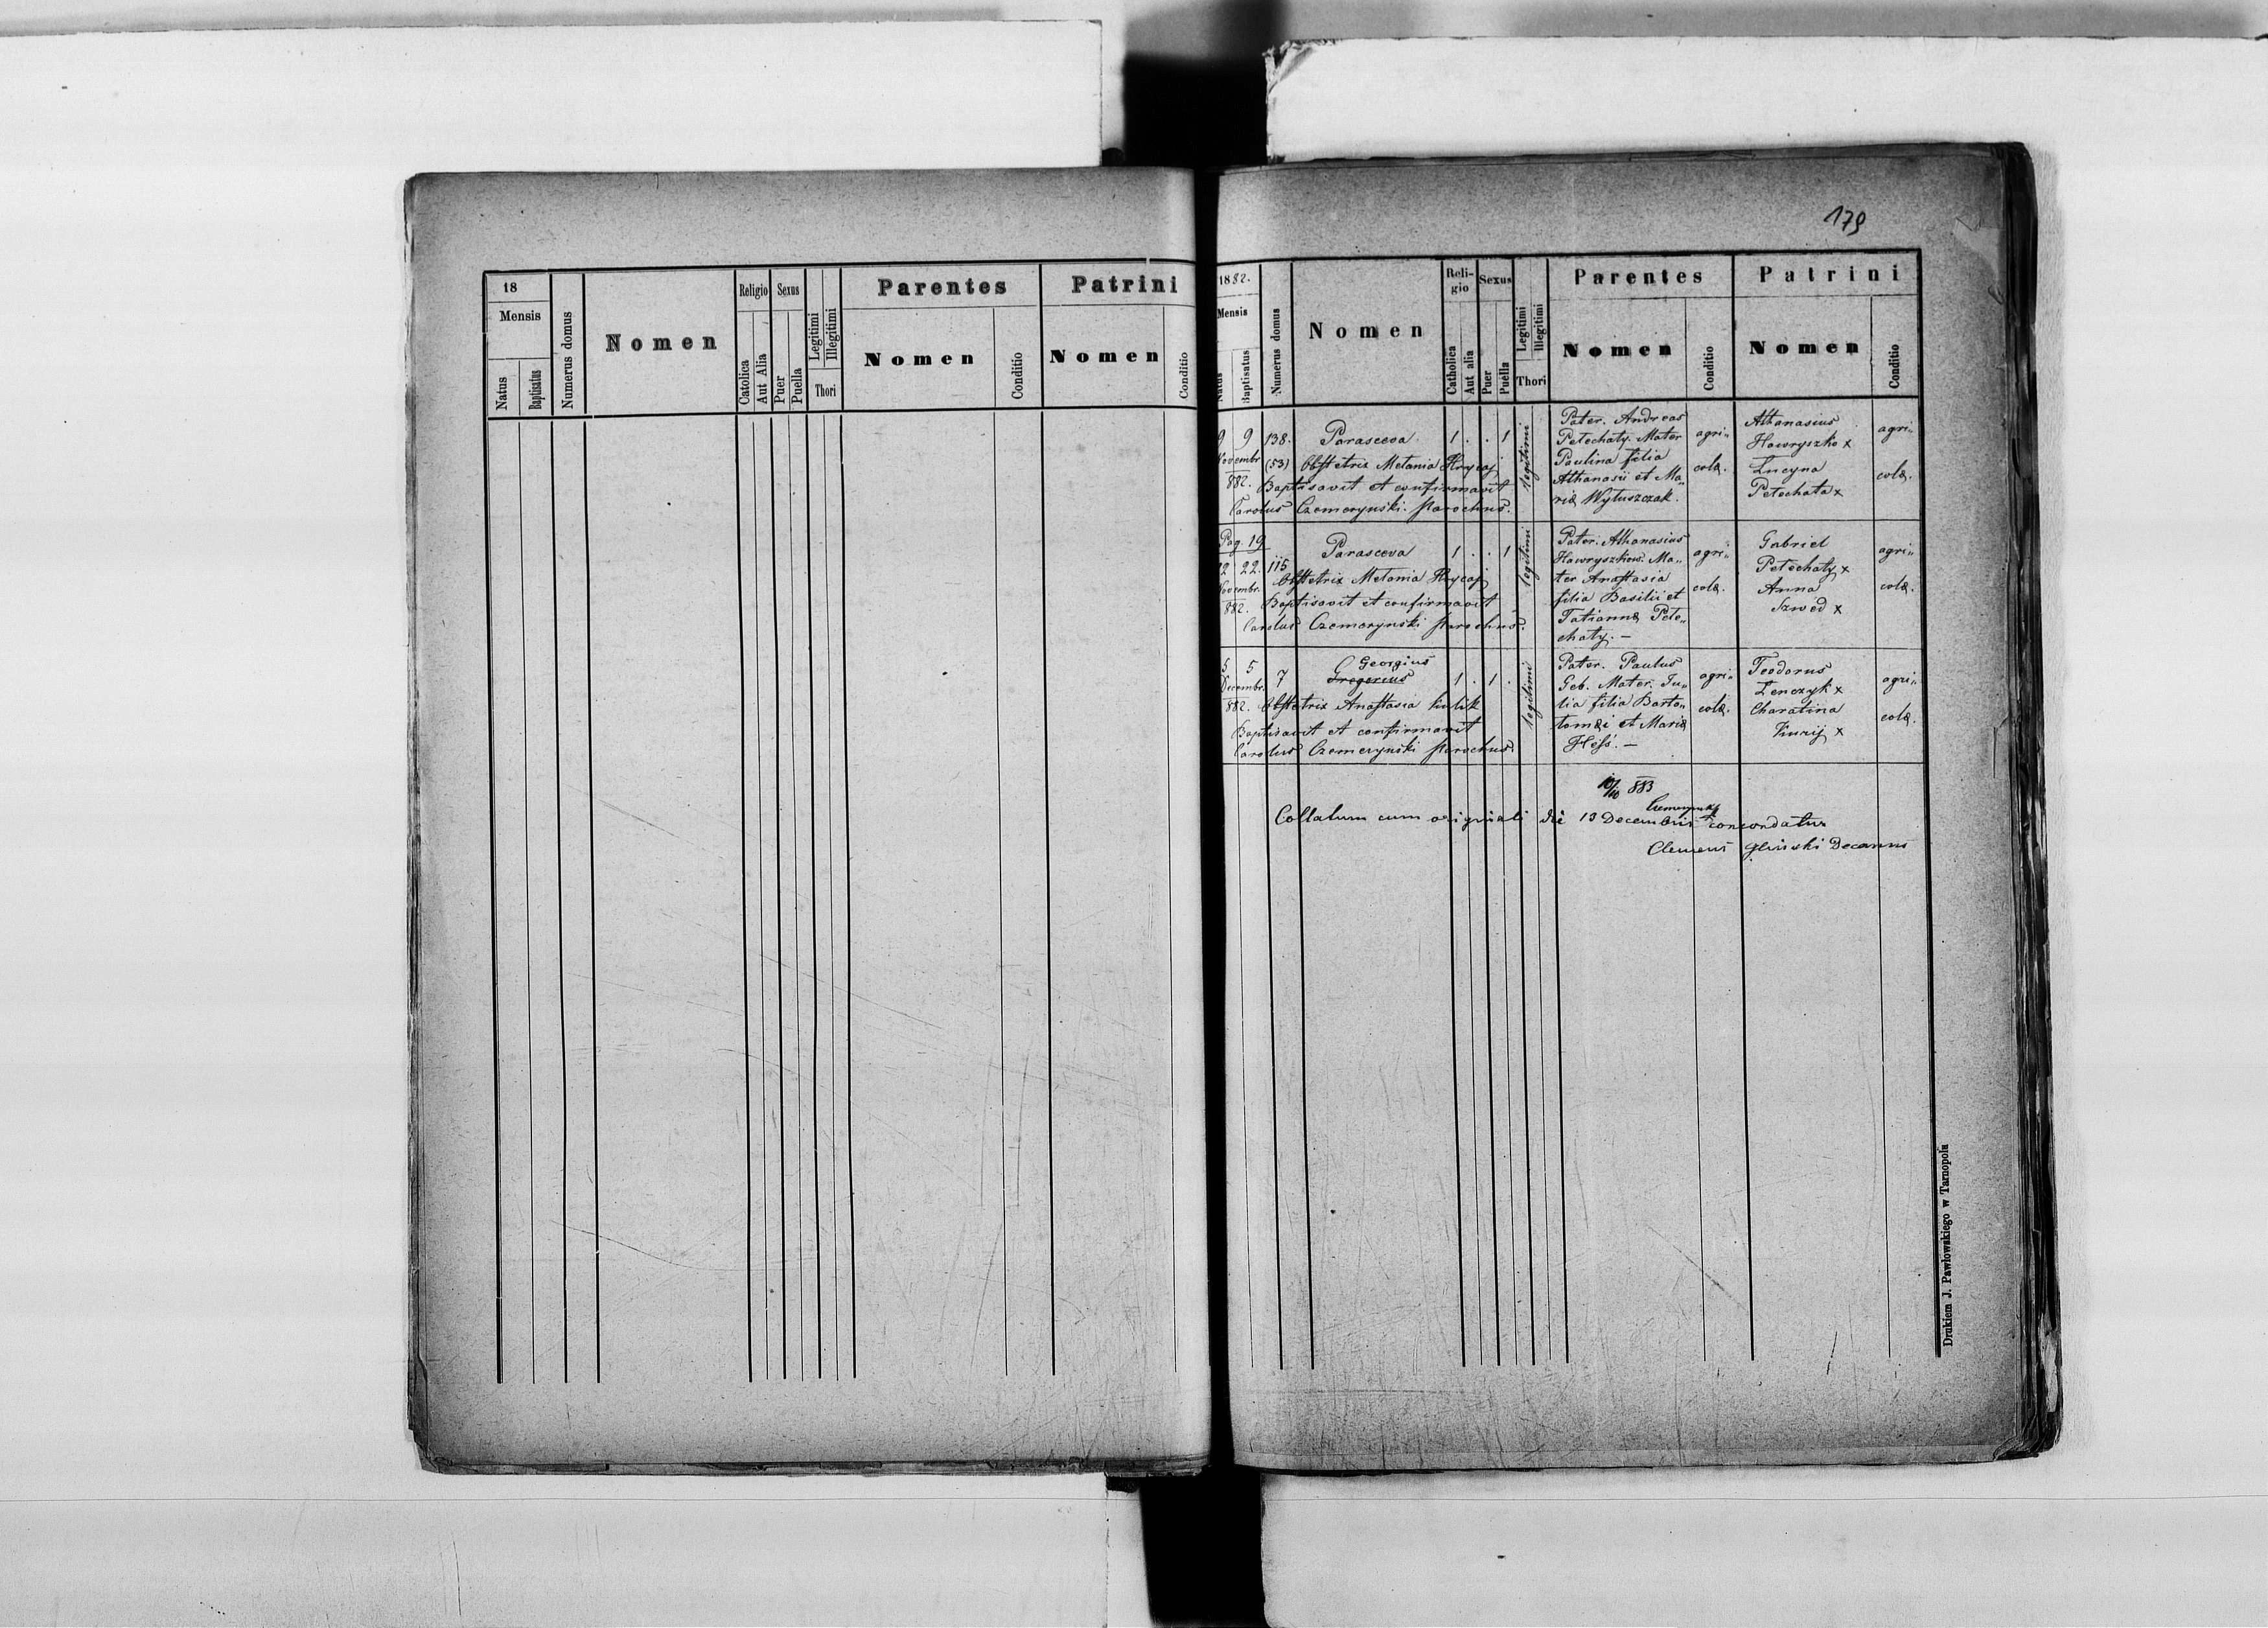 179
18
Mensis
Natus
Baptisatus
Numerus domus
Nomen
Religio
Catolica
Aut Alia
Sexus
Puer
Puella
Legitimi
Illegitimi
Thori
Parentes
Nomen
Conditio
Patrini
Nomen
Conditio
1882.
Mensis
Natus
Baptisatus
Numerus domus
Nomen
Reli-
gio
Catholica
Aut alia
Sexus
Puer
Puella
Legitimi
Illegitimi
Thori
Parentes
Nomen
Conditio
Patrini
Nomen
Conditio
9 9 138. Parasceva 1 . . 1 legitimi
Novembr (53) Obstetrix Melania Hrycaj
882. Baptisavit et confirmavit
Carolus Czemerynski parochus.
Pater. Andreas
Petechaty. Mater
Paulina filia
Athanasii et Ma„
riæ Wytuszczak.
agri„
colæ.
Athanasius
Hawryszko x
Lucyna
Petechata x
agri„
colæ.
Pag. 19
22. 115 Parasceva 1 . . 1 legitimi
Novembr. Obstetrix Melania Hrycaj
882. Baptisavit et confirmavit
Carolus Czemerynski parochus.
Pater. Athanasius
Hawryszków. Ma„
ter Anastasia
filia Basilii et
Tatiannæ Pete„
chaty. —
agri„
colæ.
Gabriel
Petechaty x
Anna
Szwed x
agri„
colæ.
Georgius
5 5 7 Gregorius 1 . 1 . legitimi
Decembr.
882. Obstetrix Anastasia Kulik
Baptisavit et confirmavit
Carolus Czemerynski parochus.
Pater. Paulus
Geb. Mater. Ju„
lia filia Barto„
lomæi et Mariæ
Hess. —
agri„
colæ.
Teodorus
Lenczyk x
Charatina
agri„
colæ.
10/10 883
Czemerynski
Collatum cum originali die 13 Decembris concordatur
Clemens Gliński Decanus
Drukiem J. Pawłowskiego w Tarnopolu